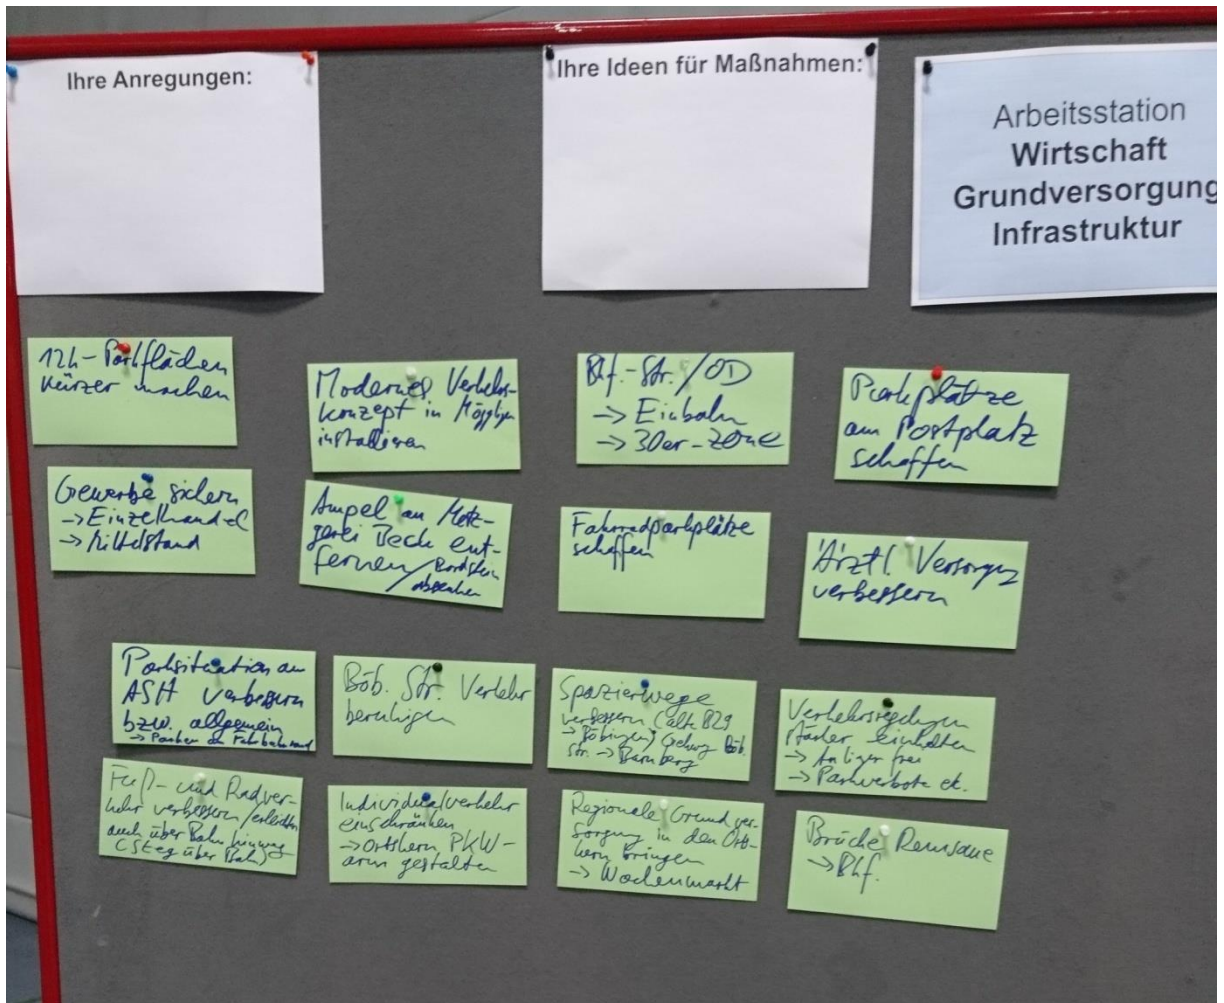 Ihre Anregungen:
Ihre Ideen für Maßnahmen:
Arbeitsstation
Wirtschaft
Grundversorgung
Infrastruktur
12h-Parkflächen
kürzer machen
Modernes Verkehrs-
konzept in Mögglingen
installieren
Bhf.-Str./OD
→ Einbahn
→ 30er-Zone
Parkplätze
am Postplatz
schaffen
Gewerbe sichern
→ Einzelhandel
→ Mittelstand
Ampel an Metz-
gerei Beck ent-
fernen/Bordstein
absenken
Fahrradparkplätze
schaffen
Ärztl. Versorgung
verbessern
Parksituation am
ASH verbessern
bzw. allgemein
→ Parken am Fahrbahnrand
Böb. Str. Verkehr
beruhigen
Spazierwege
verbessern (alte B29
→ Böbingen) Gehweg Böb.
Str. → Barnberg
Verkehrsregelungen
stärker einhalten
→ Anliger frei
→ Parkverbote etc.
Fuß- und Radver-
kehr verbessern/erleichtern
auch über Bahn hinweg
(Steg über Bahn)
Individualverkehr
einschränken
→ Ortskern PKW-
arm gestalten
Regionale Grundver-
sorgung in den Orts-
kern bringen
→ Wochenmarkt
Brücke Remsaue
→ Bhf.